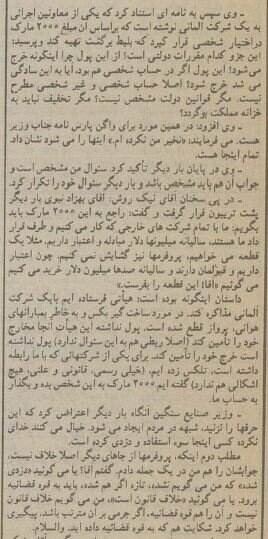 ـ وی سپس به نامه ای استناد کرد که یکی از معاونین اجرائی
به یک شرکت آلمانی نوشته است که براساس آن مبلغ ۲۰۰۰ مارک
در اختیار شخصی قرار گیرد که- بلیط برگشت تهیه کند و پرسید:
«این جزو کدام مقررات دولتی است؟ از این پول چرا اینگونه خرج
می‌شود؟ این پول اگر در حساب شخصی هم بود، آیا به این سادگی
می شد خرج شود؟ اصلا حساب شخصی و غیر شخصی مطرح
نیست. مگر قوانین دولت مشخص نیست؟ مگر تخفیف نباید به
خزانه مملکت برگردد؟
ـ وی افزود: در همین مورد برای واگن پارس نامه جناب وزیر
هست. می فرمایند: «نخیر من نکرده ام.» اینها را می شود نشان داد.
تمام اینجا هست.
ـ وی در پایان بار دیگر تأکید کرد. سئوال من مشخص است و
جواب آن هم باید مشخص باشد و بار دیگر سئوال خود را تکرار کرد.
ـ در پی سخنان آقای نیک روش، آقای بهزاد نبوی بار دیگر
پشت تریبون قرار گرفت و گفت: راجع به این ۲۰۰۰ مارک باید
بگویم: ما با تمام شرکت های خارجی که کار می کنیم و طرف قرار
داد ما هستند، سالیانه میلیونها دلار مبادله و اعتبار داریم. مثلا یک
قطعه می خواهیم، پروفرمها نیز گشایش نمی کنیم. چون اعتبار
داریم و قبولمان دارند و سالیانه صدها میلیون دلار خرید می کنیم
می گوئیم «آقا! این قطعه را بفرست.»
داستان اینگونه بوده است: هیأتی فرستاده ایم با یک شرکت
آلمانی مذاکره کند. در مورد ساخت گیر بکس و به خاطر بمبارانهای
هوائی، پرواز قطع شده است. پول نداشته این هیأت آنجا مخارج
خود را تأمین کند (اصلا ربطی هم به این سئوال ندارد) پول نداشته
است خرج خود را تأمین کند. برای یکی از شرکتهائی که با ما رابطه
داشته است، تلکس زده ایم، (خیلی رسمی، قانونی و علنی، هیچ
اشکالی هم ندارد) گفته ایم ۲۰۰۰ مارک به این شخص بده و بگذار
به حساب ما.
ـ وزیر صنایع سنگین آنگاه بار دیگر اعتراض کرد که این
حرفها را نزنید. شبهه در مردم ایجاد می شود. خیال می کنند خدای
نکرده کسی اینجا سوء استفاده و دزدی کرده است.
مطلب دوم اینکه، پروفرمها از جاهای دیگر اصلا خلاف نیست.
جوابشان را هم من در یک جمله دادم. گفتم آقا! یا می گوئید «دزدی
شده» که من می گویم نشده، تازه اگر هم شده، باید به قوه قضائیه
برود. یا می گوئید «خلاف قانون است» من می گویم خلاف قانون
نیست و آن را هم قوه قضائیه، اگر جرمی بر آن مترتب باشد، پیگیری
خواهد کرد. شکایت هم که به قوه قضائیه داده اید. والسلام.